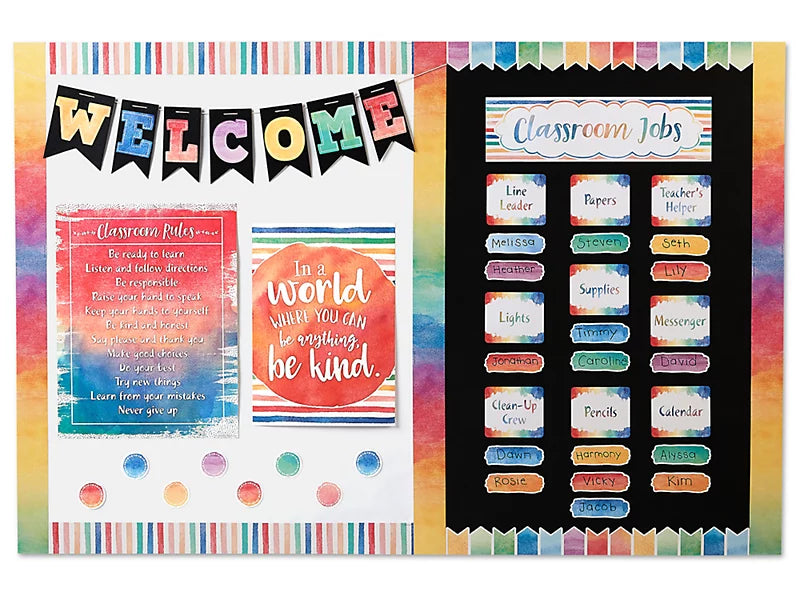 WELCOME
Classroom Rules
Be ready to learn
Listen and follow directions
Be responsible
Raise your hand to speak
Keep your hands to yourself
Be kind and honest
Say please and thank you
Make good choices
Do your best
Try new things
Learn from your mistakes
Never give up
In a
world
WHERE YOU CAN
be anything,
be kind.
Classroom Jobs
Line
Leader
Melissa
Heather
Papers
Steven
Teacher's
Helper
Seth
Lily
Lights
Jonathan
Supplies
Timmy
Caroline
Messenger
David
Clean-Up
Crew
Dawn
Rosie
Pencils
Harmony
Vicky
Jacob
Calendar
Alyssa
Kim